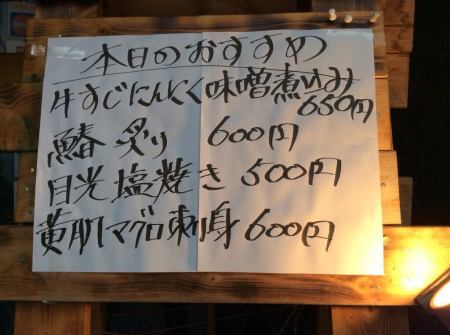 本日のおすすめ
牛すじにんにく味噌煮込み
650円
鰆 炙り 600円
目光塩焼き 500円
黄肌マグロ刺身 600円